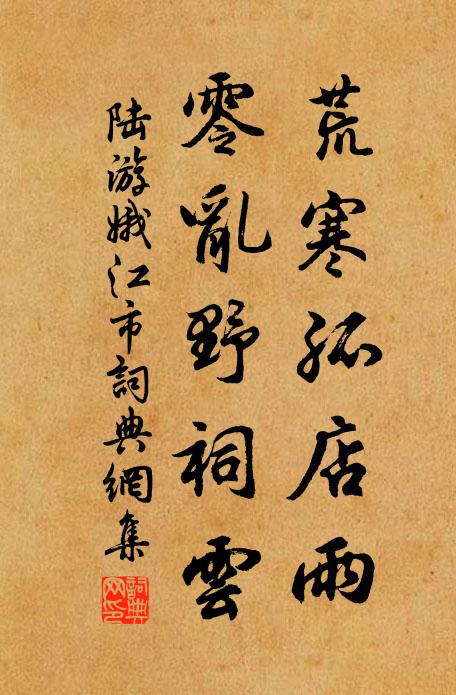 荒寒孤店雨
零亂野祠雲
陆游娥江市詞典網集
詞典
网印